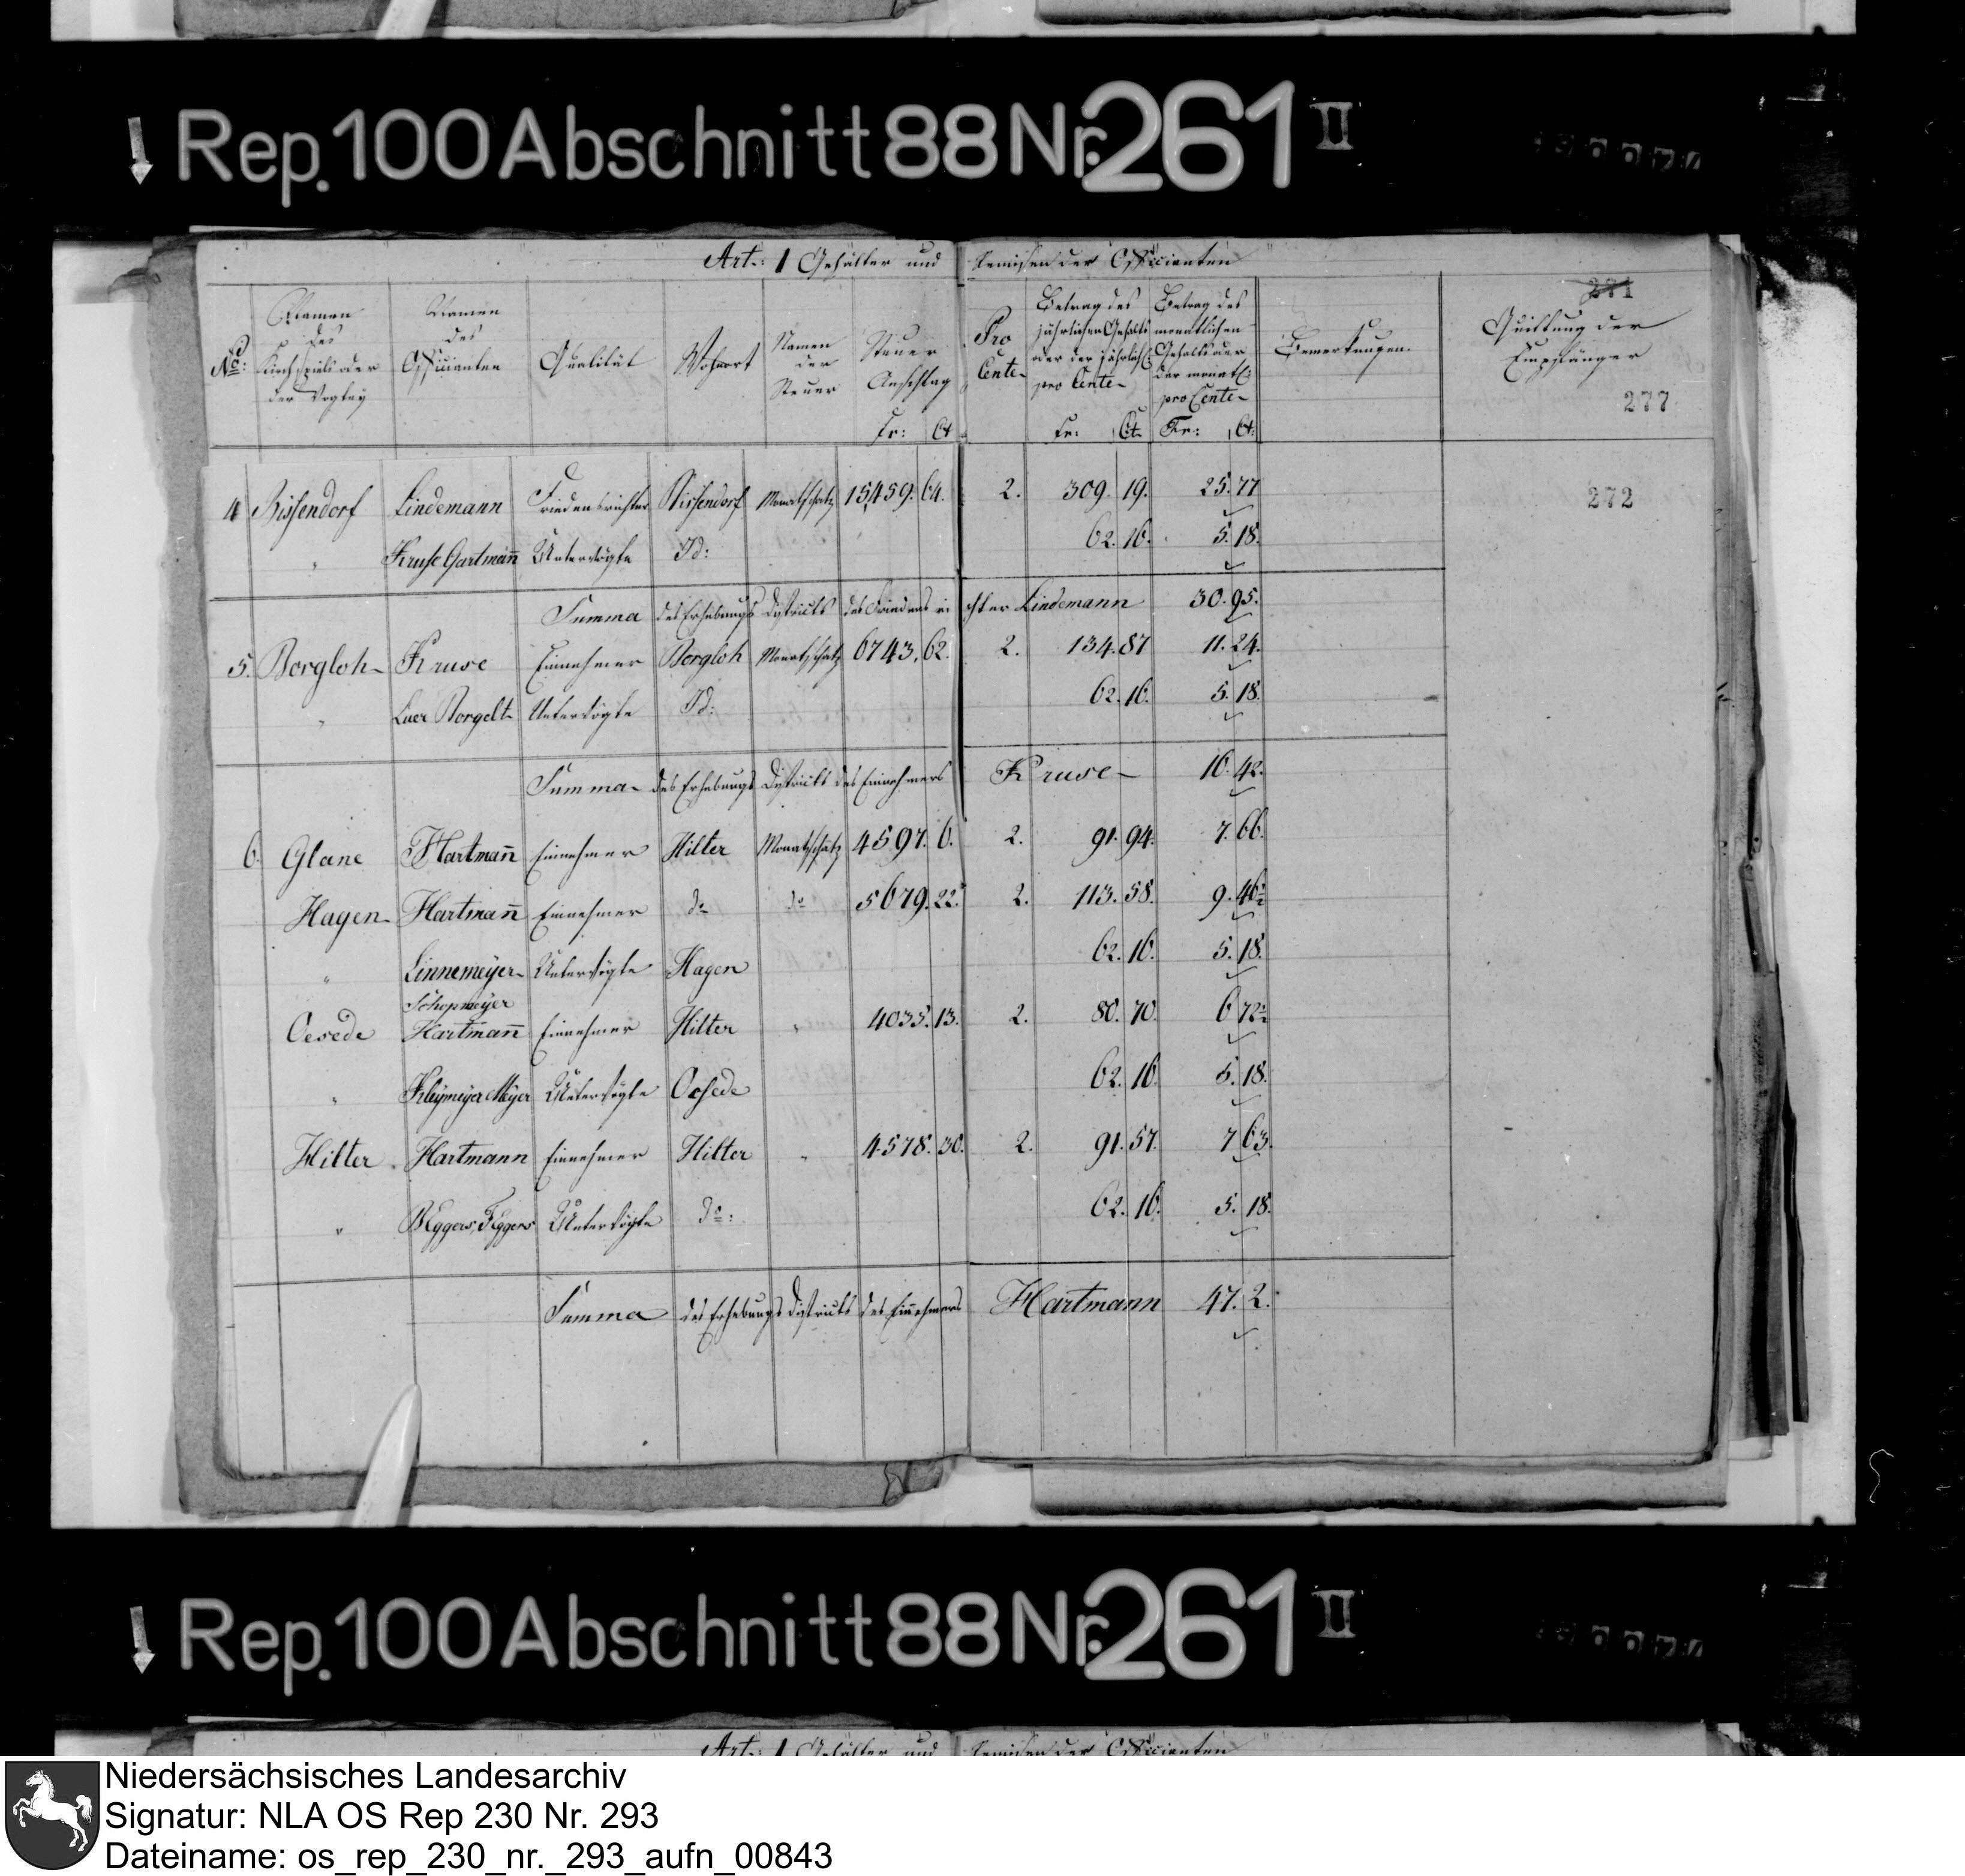 Rep. 100 Abschnitt 88 Nr. 261 II
Art: 1 Gehälter und Remisen der Officianten
271
No: Namen des Kirchspiels oder der Vogtey Namen des Officianten Qualität Wohnort Namen der Steuer Steuer Anschlag Fr: Ct Pro Cente Betrag des jährlichen Gehalts oder der jährlich: pro Cente Fr: Ct. Betrag des monatlichen Gehalts oder der monatl: pro Cente Fr: Ct: Bemerkungen. Quittung der Empfänger
277
272
4 Bissendorf Lindemann Friedensrichter Bissendorf Monatschatz 15,459. 64. 2. 309. 19. 25. 77
" Kruse Gartmañ Untervögte Id: 62. 16. 5. 18.
Summa des Erhebungs Districts des Friedens richter Lindemann 30. 95.
5. Borgloh Kruse Einnehmer Borgloh Monatschatz 6743. 62. 2. 134. 87 11. 24.
" Luer Borgelt Untervögte Id: 62. 16. 5. 18.
Summa des Erhebungs Districts des Einnehmers Kruse 16. 42.
6. Glane Hartmañ Einnehmer Hilter Monatschatz 4597. 6. 2. 91. 94. 7. 66.
Hagen Hartmañ Einnehmer do do 5679. 22. 2. 113. 58. 9. 46½
" Linnemeyer Untervögte Hagen 62. 16. 5. 18.
Schopmeyer
Oesede Hartmañ Einnehmer Hilter " 4035. 13. 2. 80. 70. 6 72½
" Kleymeyer Meyer Untervögte Oesede 62. 16. 5. 18.
Hilter Hartmann Einnehmer Hilter " 4578. 30. 2. 91. 57. 7 63.
" Eggers Untervögte do: 62. 16. 5. 18.
Summa des Erhebungs Districts des Eiñehmers Hartmann 47. 2.
Rep. 100 Abschnitt 88 Nr. 261 II
Art: 1 Gehälter und Remisen der Officianten
Niedersächsisches Landesarchiv
Signatur: NLA OS Rep 230 Nr. 293
Dateiname: os_rep_230_nr._293_aufn_00843